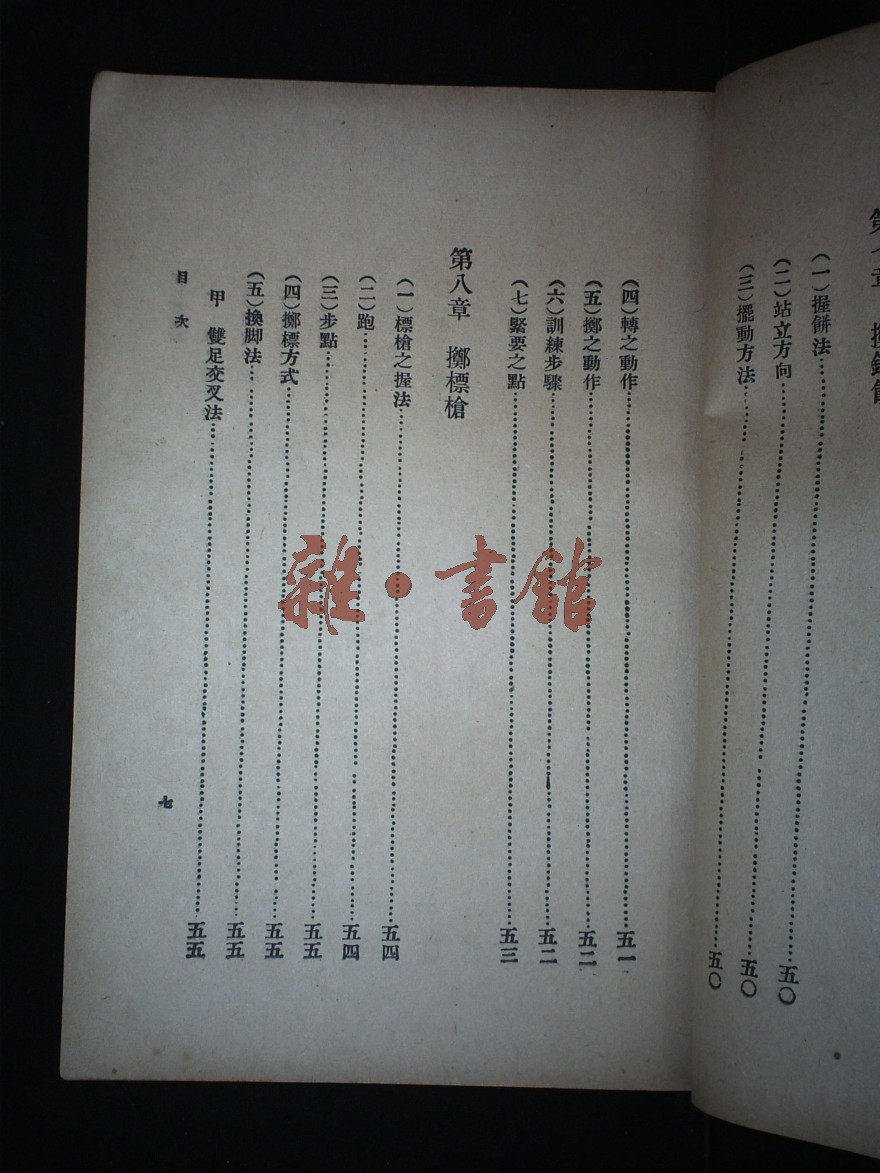 (一)握餅法……五〇
(二)站立方向……五〇
(三)擺動方法……五〇
(四)轉之動作……五一
(五)擲之動作……五二
(六)訓練步驟……五二
(七)緊要之點……五三
第八章 擲標槍
(一)標槍之握法……五四
(二)跑……五四
(三)步點……五五
(四)擲標方式……五五
(五)換脚法……五五
甲 雙足交叉法……五五
目次
七
雜·書館